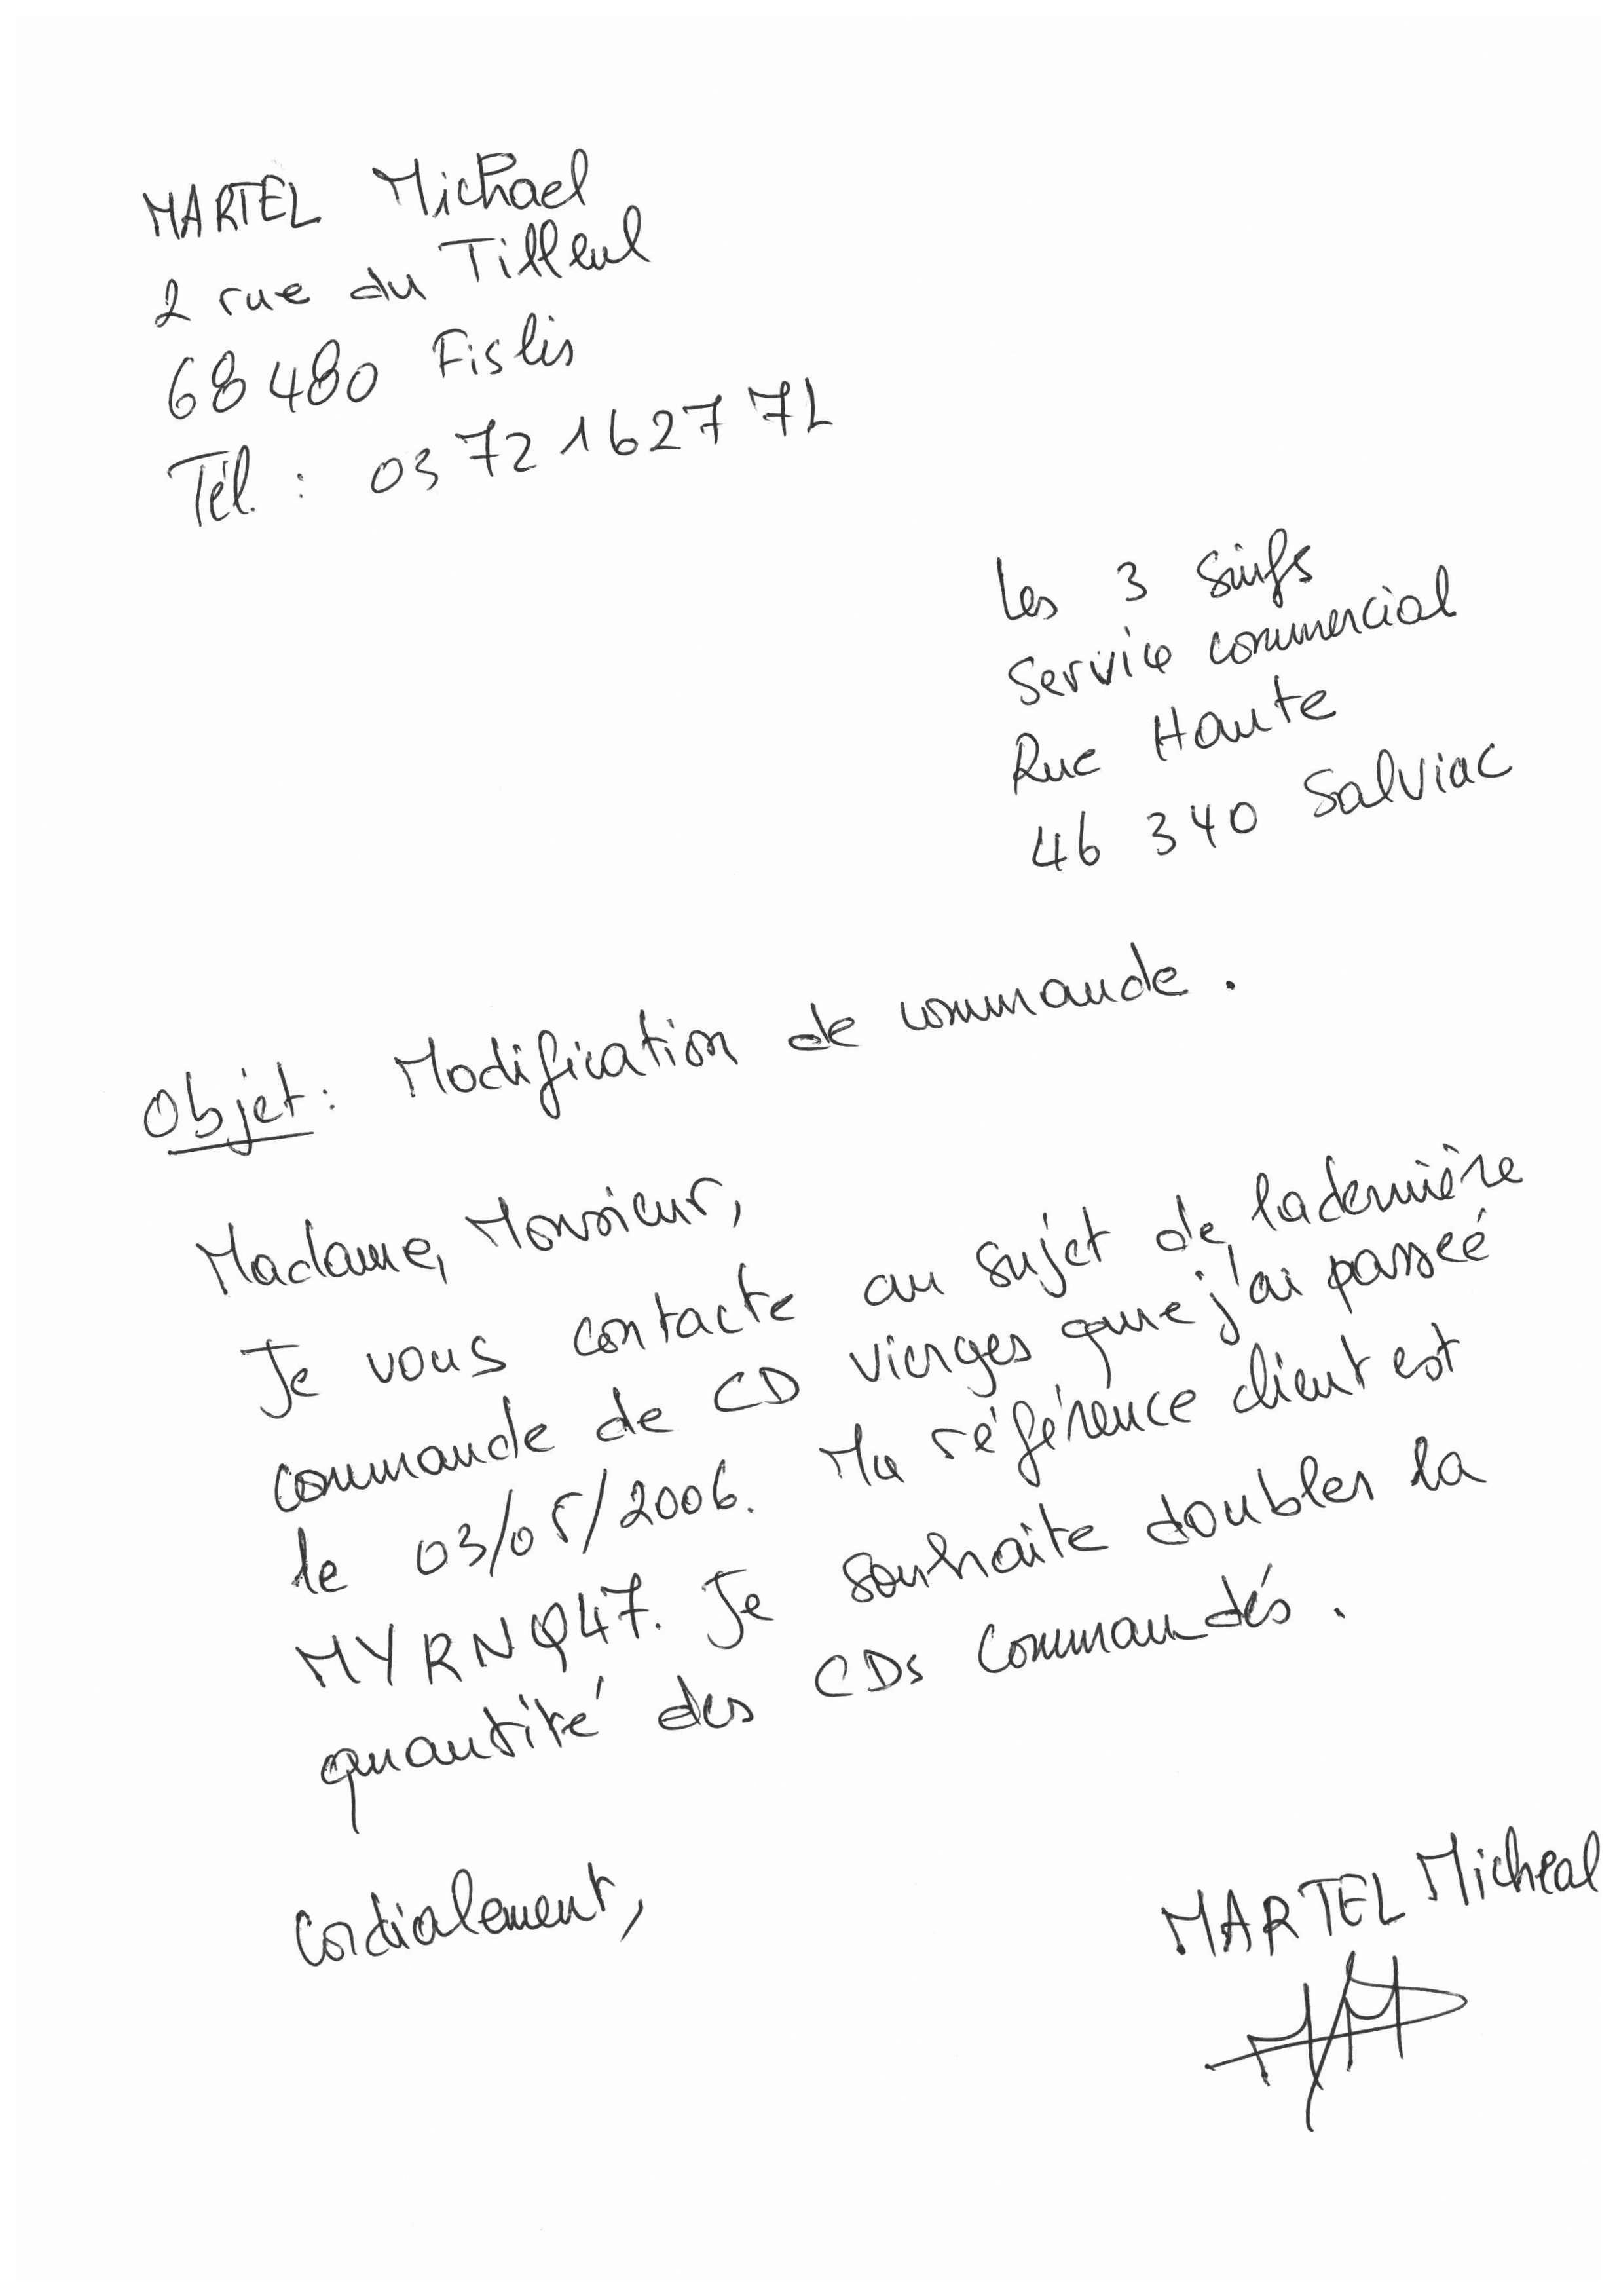 MARTEL Michael
2 rue du Tilleul
68480 Fislis
Tél. : 03 72 16 27 71
Les 3 Suifs
Service commercial
Rue Haute
46 340 Salviac
Objet : Modification de commande.
Madame, Monsieur,
Je vous contacte au sujet de la dernière
commande de CD vierges que j'ai passeé
le 03/05/2006. Ma référence client est
MYRNQ47. Je souhaite doubler la
quantité des CDs commandés.
Cordialement,
MARTEL Micheal